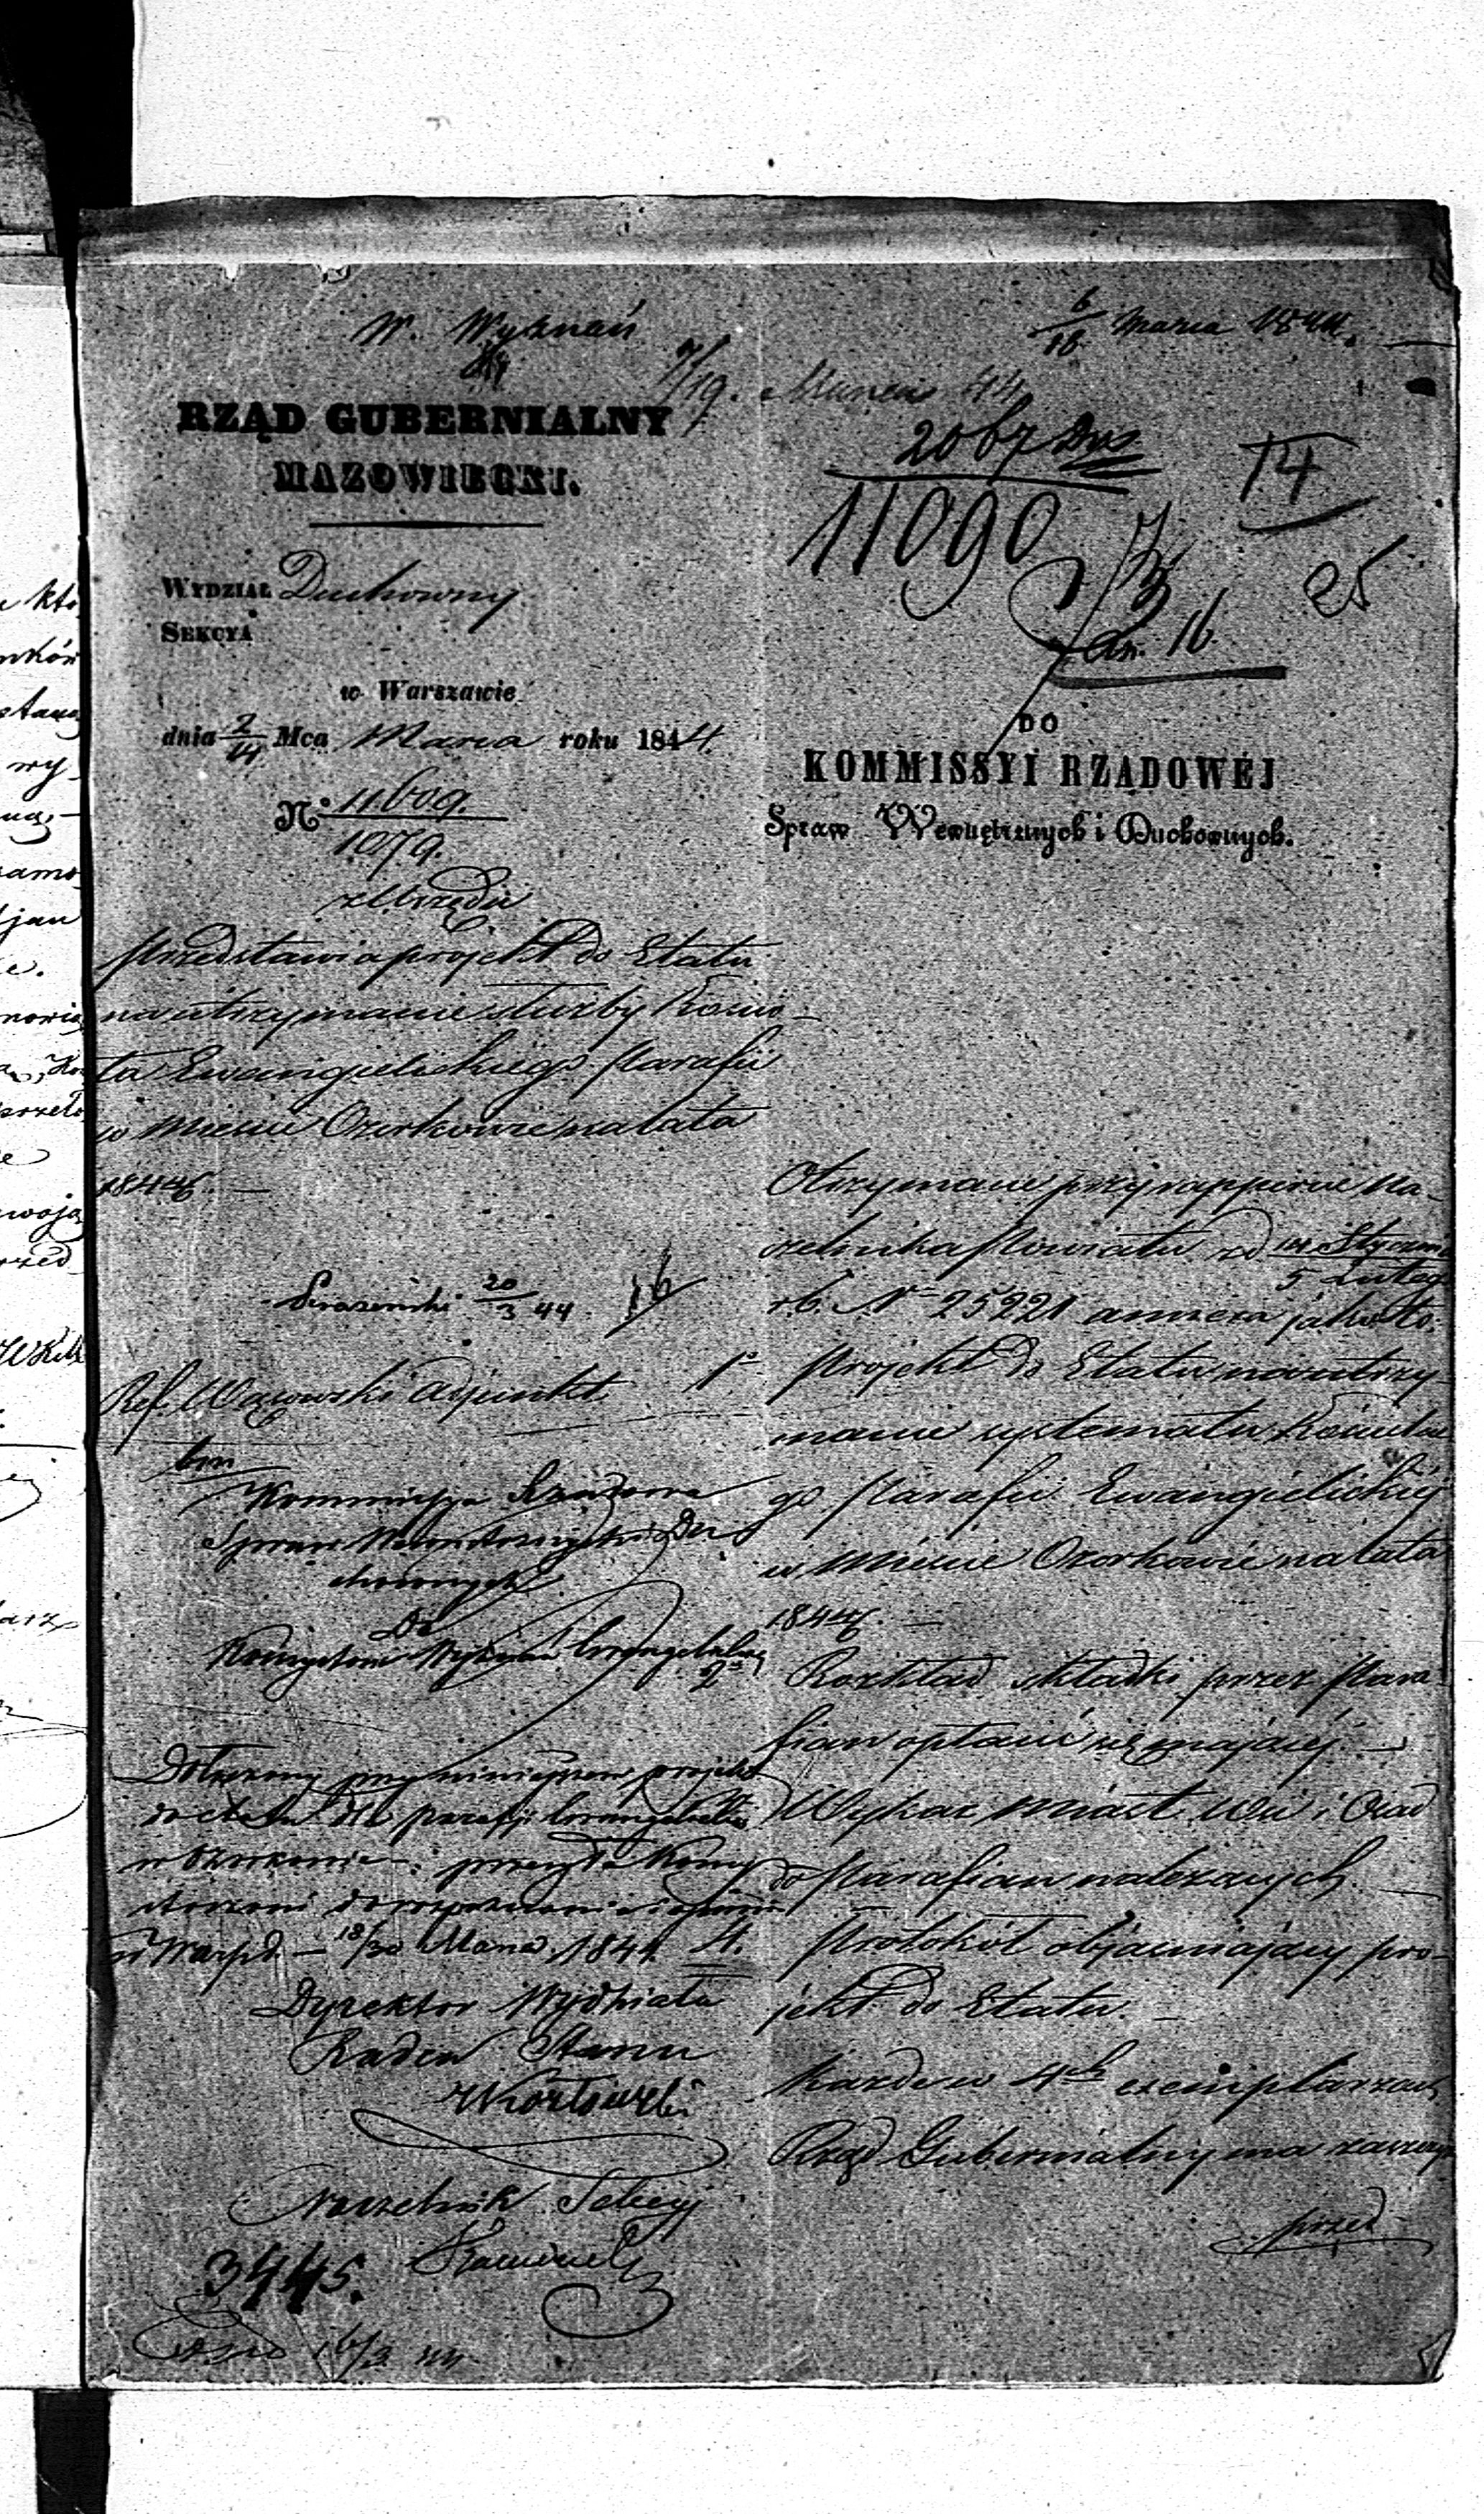 W. Wyznań
6/18 Marca 1844.
7/19. Marca 44
RZĄD GUBERNIALNY
MAZOWIECKI.
2067
11090
14
25
16
WYDZIAŁ Duchowny
SEKCYA
w Warszawie
dnia 2/14 Mca Marca roku 1844.
N° 11609.
1079.
z Urzędu
Przedstawia projekt do Etatu
na utrzymanie służby Kościo-
ła Ewangielickiego Parafii
w Mieście Ozorkowie na lata
1844/6. —
DO
KOMMISSYI RZĄDOWÉJ
Spraw Wewnętrznych i Duchownych.
Otrzymane przy rapporcie Na-
czelnika Powiatu z d 14 Styczn
5 Lutego
r b. N° 25221 annexa jako to:
1° Projekt do Etatu na utrzy
manie systematu Kościelne
go Parafii Ewangielickiéj
w Mieście Ozorkowie na lata
1844/6. —
2° Rozkład składki przez Para
fian opłacić się mającéj —
Wykaz Miast, Wsi i Osad
do Parafian należących. —
4. Protokół objaśniający pro-
jekt do Etatu. —
każde w 4ch exemplarzach
Rząd Gubernialny ma zaszczyt
przed
20/3 44
Ref. Wąsowski Adjunkt
Kommissya Rządowa
Spraw Wewnętrznych i Du
chownych
Do
Konsystorza Wyznań Ewangelickiego
Dołączony przy niniejszem projekt
do etatu dla parafii Ewangelickiéj
w Ozorkowie przesyła Konsy
storzowi do rozpoznania i opinii
w Warsz. — 18/30 Marca 1844
Dyrektor Wydziału
Radca Stanu
Kozłowski
Naczelnik Sekcyi
3445.
16/3 44